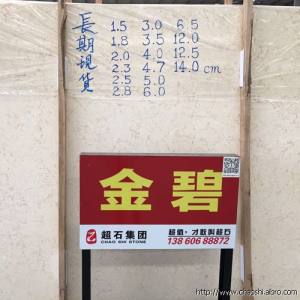 長期現貨
1.5 3.0 6.5
1.8 3.5 12.0
2.0 4.0 12.5
2.3 4.7 14.0 cm
2.5 5.0
2.8 6.0
金碧
超石集团
CHAO SHI STONE
超值,才敢叫超石
138 606 88872
http://www.chaoshi.abro.com